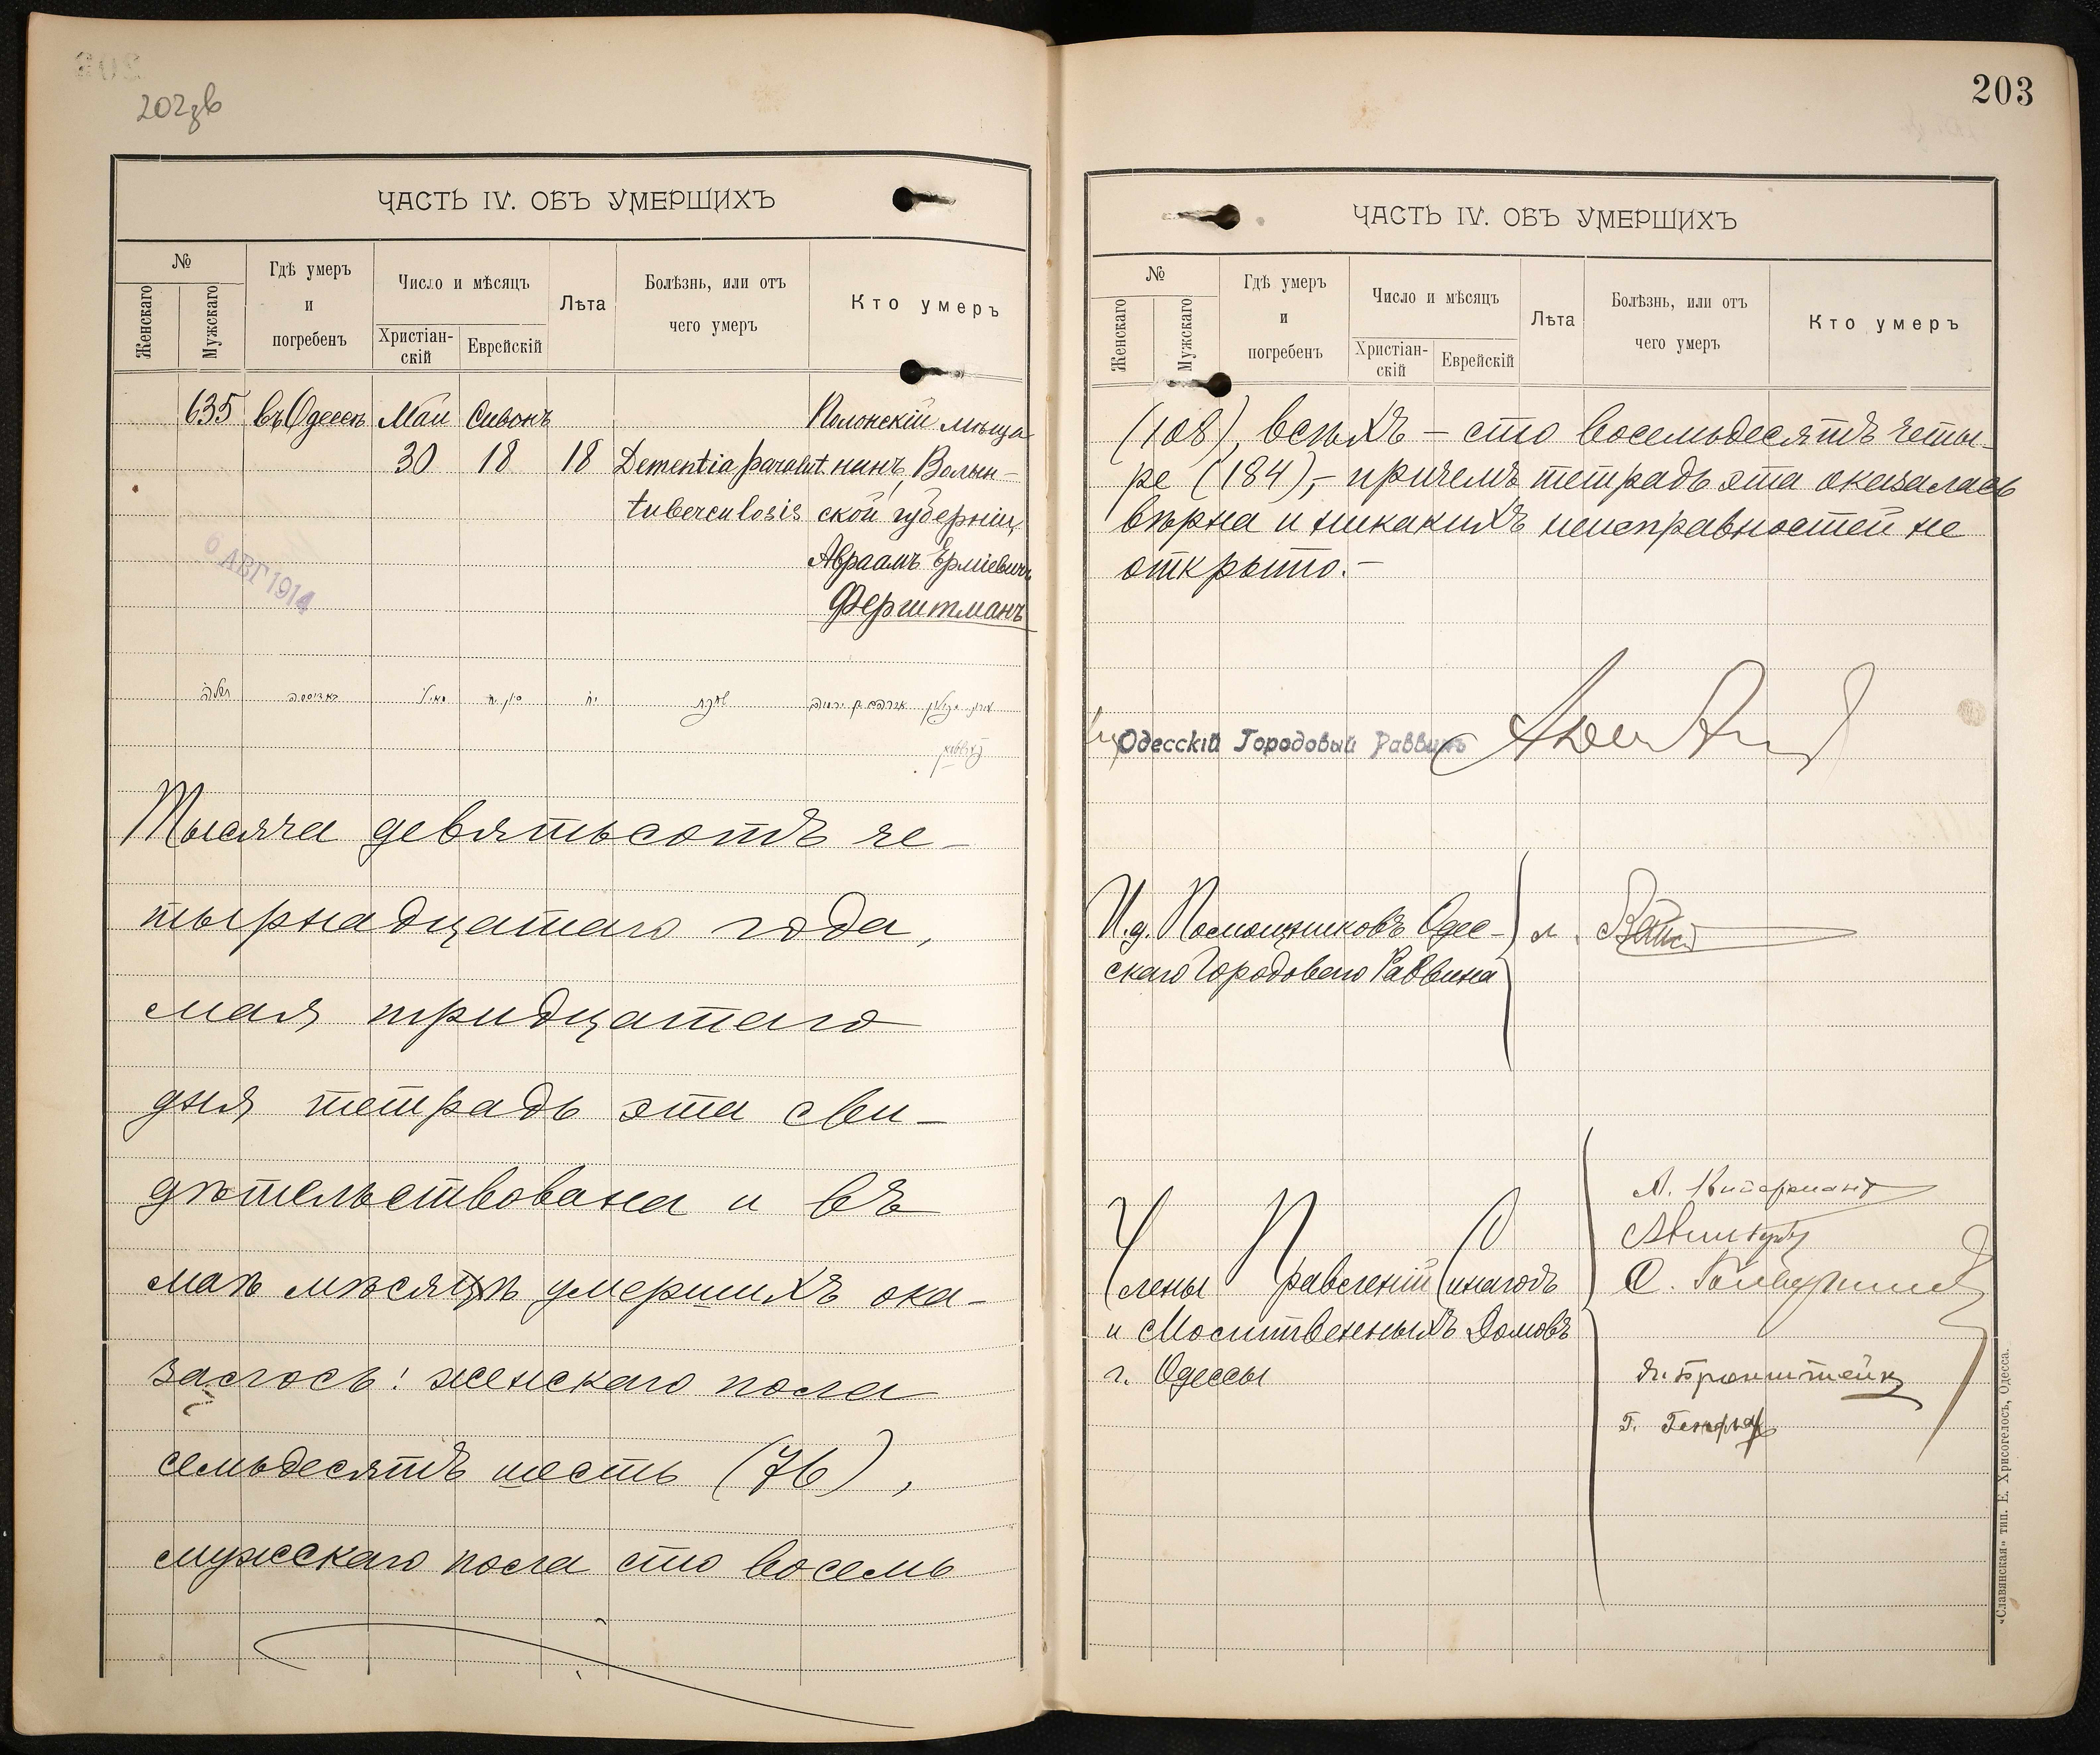 202зв
ЧАСТЬ IV. ОБЪ УМЕРШИХЪ
№
Женскаго
Мужскаго
Гдѣ умеръ
и
погребенъ
Число и мѣсяцъ
Христіан-
скій
Еврейскій
Лѣта
Болѣзнь, или отъ
чего умеръ
Кто умеръ
635 въ Одессѣ Май Сивонъ Полонскій мѣща
30 18 18 Dementia paralit. нинъ, Волын-
tuberculosis ской губерніи,
Авраамъ Ерміевичъ
Ферштманъ
6 АВГ 1914
Тысяча девятьсотъ че-
тырнадцатаго года,
мая тридцатаго
дня тетрадь эта сви-
дѣтельствована и въ
маѣ мѣсяцѣ умершихъ ока-
залось: женскаго пола
семьдесятъ шесть (76),
мужскаго пола сто восемь
203
ЧАСТЬ IV. ОБЪ УМЕРШИХЪ
№
Женскаго
Мужскаго
Гдѣ умеръ
и
погребенъ
Число и мѣсяцъ
Христіан-
скій
Еврейскій
Лѣта
Болѣзнь, или отъ
чего умеръ
Кто умеръ
(108), всѣхъ – сто восемьдесятъ четы-
ре (184),- причемъ тетрадь эта оказалась
вѣрна и никакихъ неисправностей не
открыто.-
Одесскій Городовый Раввинъ
И.д. Помощниковъ Одес-
скаго Городоваго Раввина
Члены Правленій Синагогъ
и Молитвенныхъ Домовъ
г. Одессы
Бронштейнъ
«Славянская» тип. Е. Хрисогелосъ, Одесса.